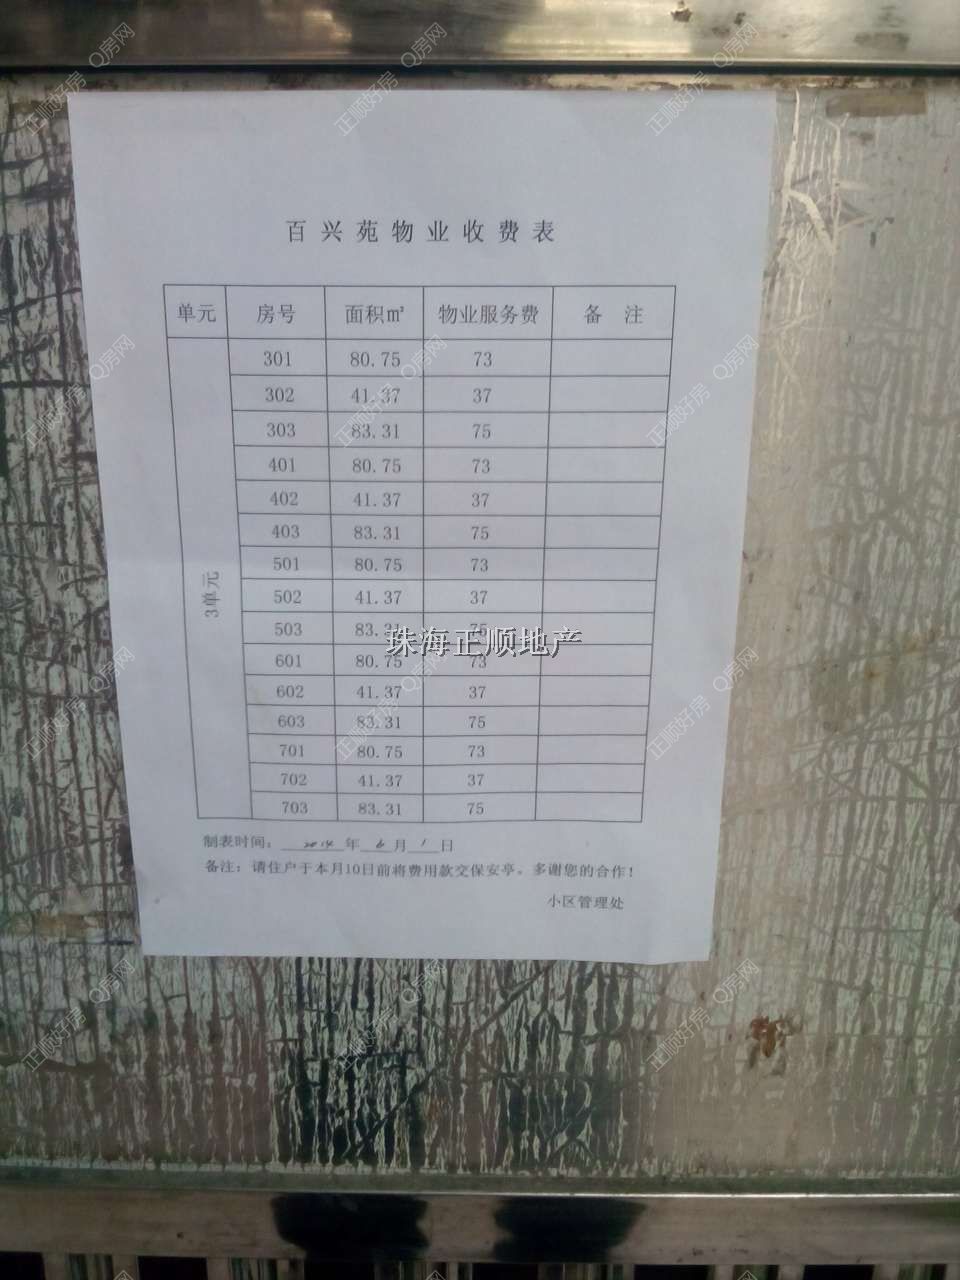 百兴苑物业收费表
单元 房号 面积㎡ 物业服务费 备 注
3单元
301 80.75 73
302 41.37 37
303 83.31 75
401 80.75 73
402 41.37 37
403 83.31 75
501 80.75 73
502 41.37 37
503 83.31 75
珠海正顺地产
601 80.75 73
602 41.37 37
603 83.31 75
701 80.75 73
702 41.37 37
703 83.31 75
制表时间: 2014 年 6 月 1 日
备注: 请住户于本月10日前将费用款交保安亭。多谢您的合作!
小区管理处
正顺好房 Q房网